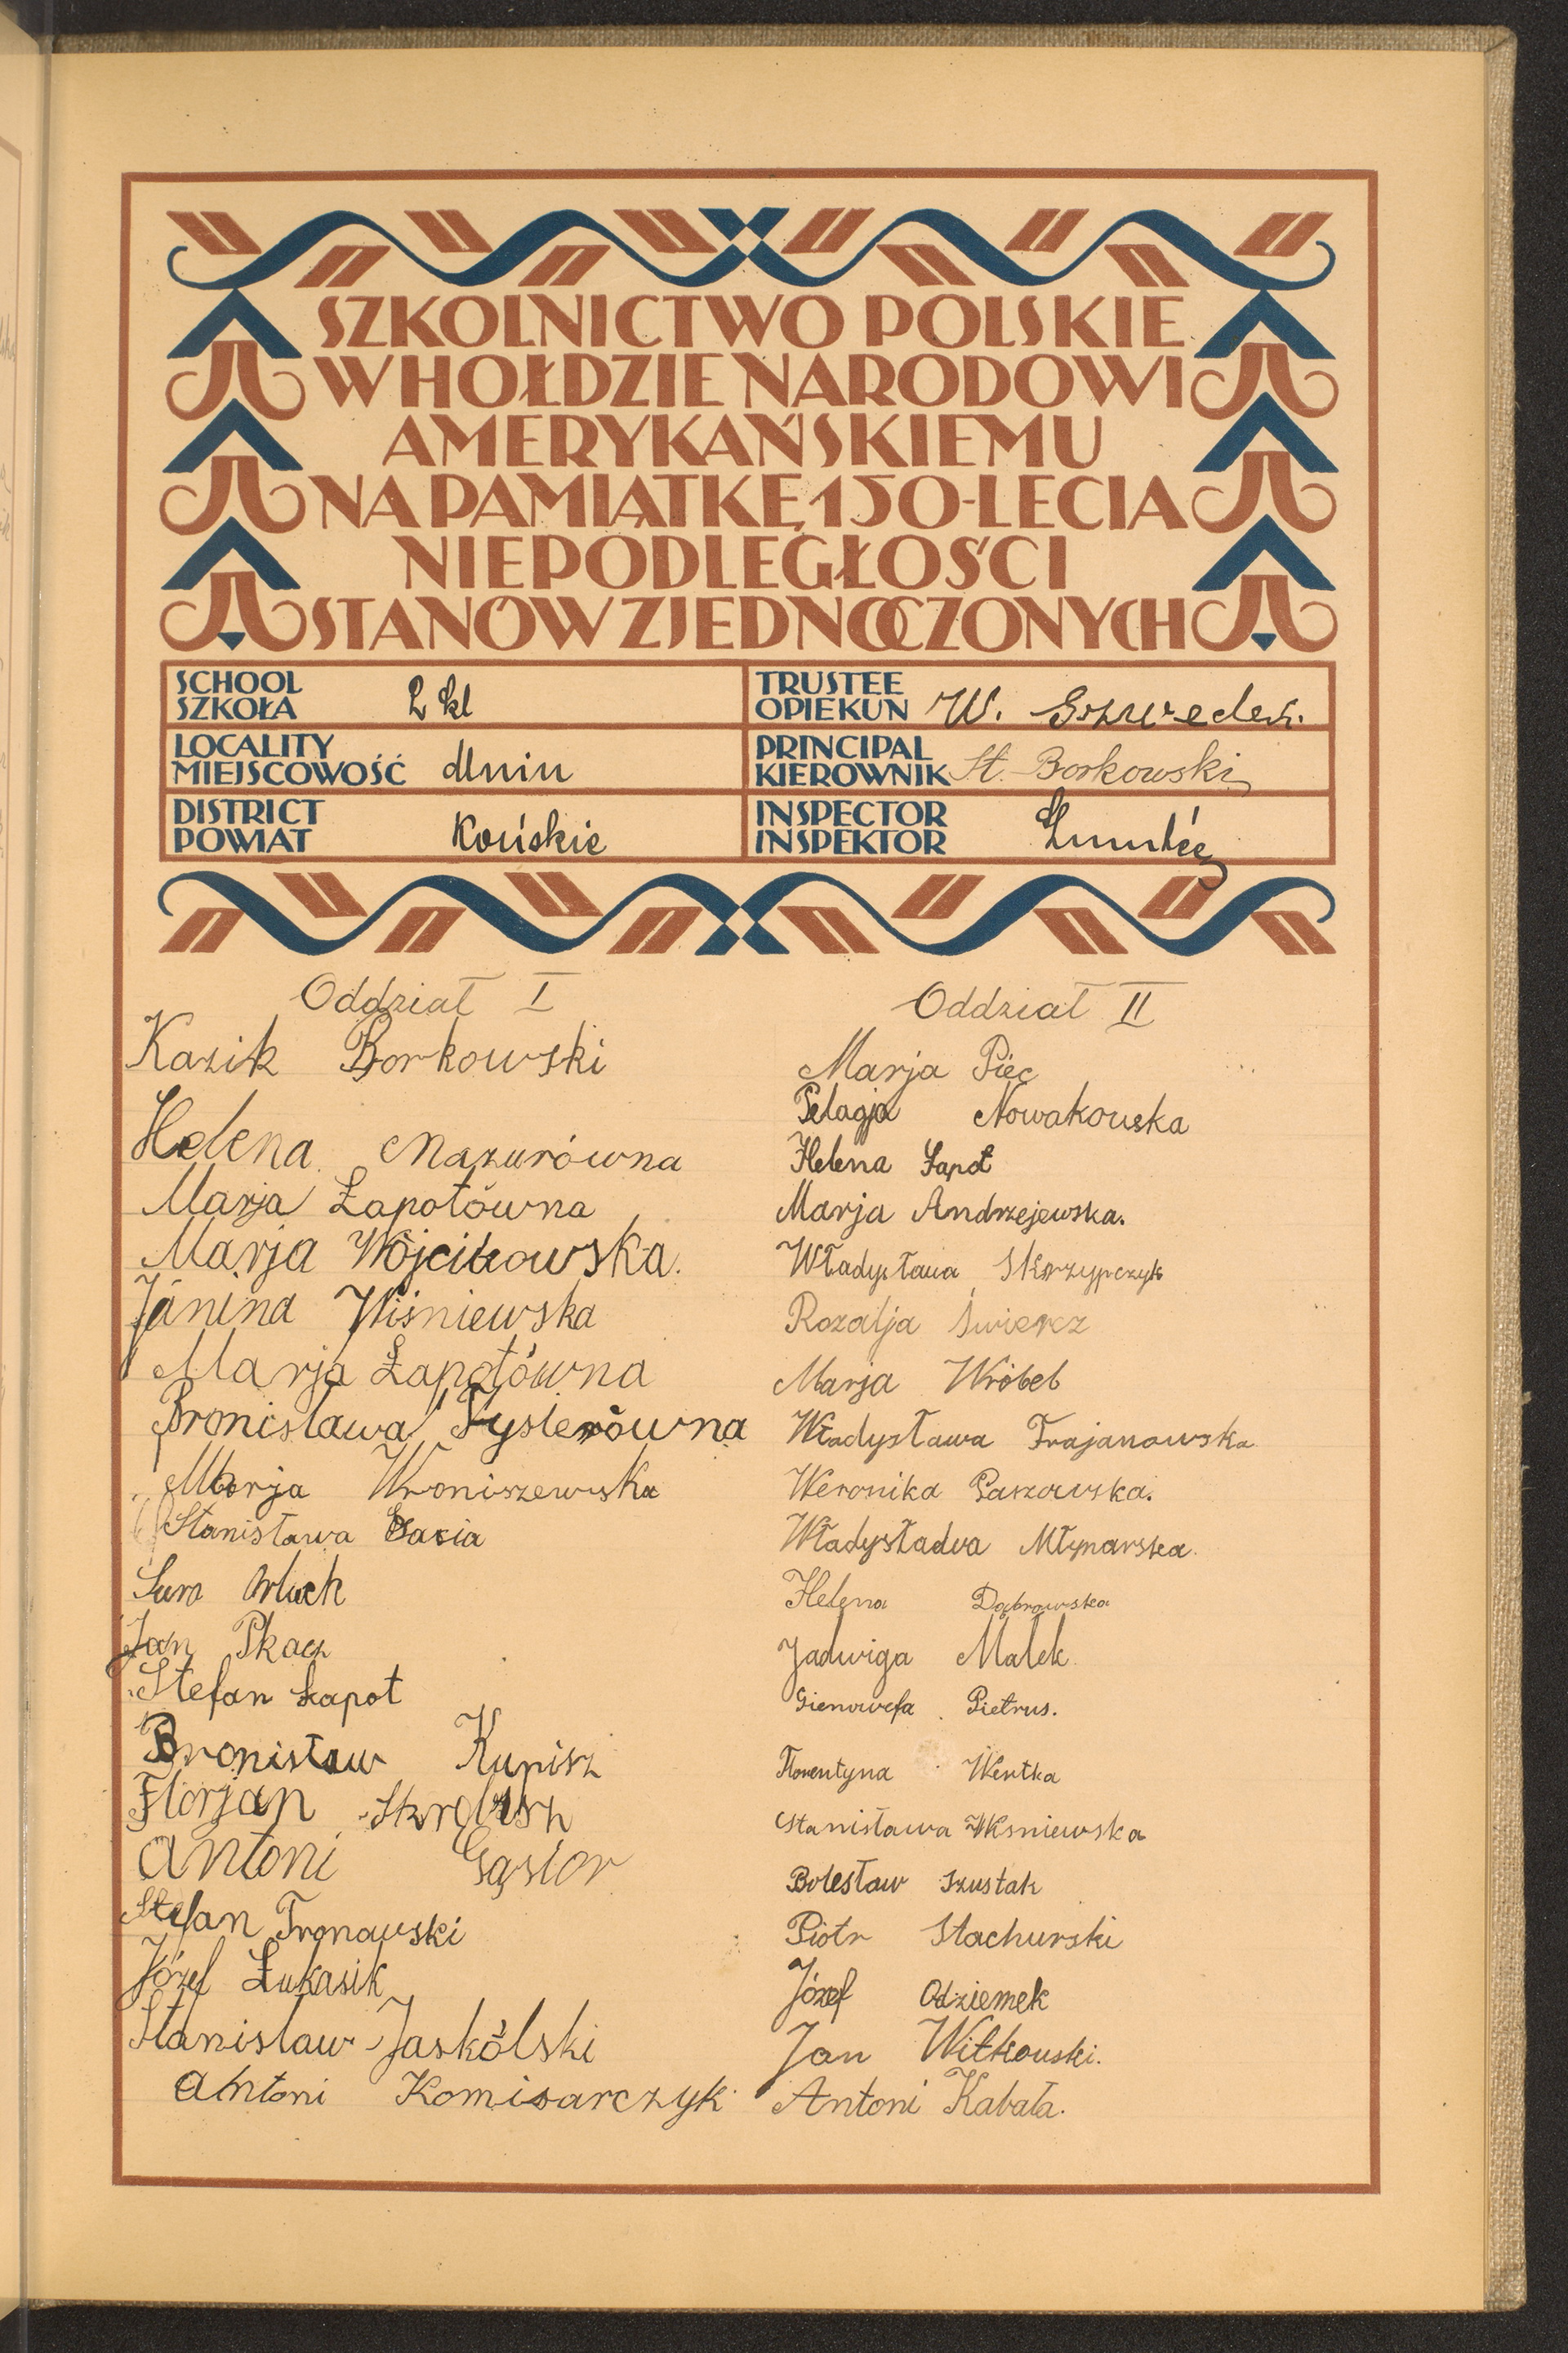 SZKOLNICTWO POLSKIE
W HOŁDZIE NARODOWI
AMERYKAŃSKIEMU
NA PAMIĄTKĘ 150-LECIA
NIEPODLEGŁOŚCI
STANÓW ZJEDNOCZONYCH
SCHOOL
SZKOŁA 2 kl
TRUSTEE
OPIEKUN W. Szwedek.
LOCALITY
MIEJSCOWOŚĆ Unin
PRINCIPAL
KIEROWNIK St. Borkowski
DISTRICT
POWIAT Końskie
INSPECTOR
INSPEKTOR
Oddział I
Kazik Borkowski
Helena Mazurówna
Marja Łapotówna
Marja Wójcikowska.
Janina Wiśniewska
Marja Łapotówna
Bronisława Fyslerówna
Marja Wroniszewska
Stanisława
Jan Pkacz
Stefan Łapot
Bronisław Kupisz
Florjan
Antoni Gąsior
Stefan Tronowski
Józef Łukasik
Stanisław Jaskólski
Antoni Komisarczyk
Oddział II
Marja Piec
Pelagja Nowakowska
Helena Łapot
Marja Andrzejewska.
Władysława Skorzypczyk
Rozalja Świercz
Marja Wróbel
Władysława Trajanowska
Weronika Gaszowska.
Władysładwa Młynarska.
Helena Dąbrowska
Jadwiga Malek
Gienowefa Pietrus.
Florentyna Wentka
Stanisława Wiśniewska
Bolesław Szustak
Piotr Stachurski
Józef Odziemek
Jan Witkowski.
Antoni Kabała.